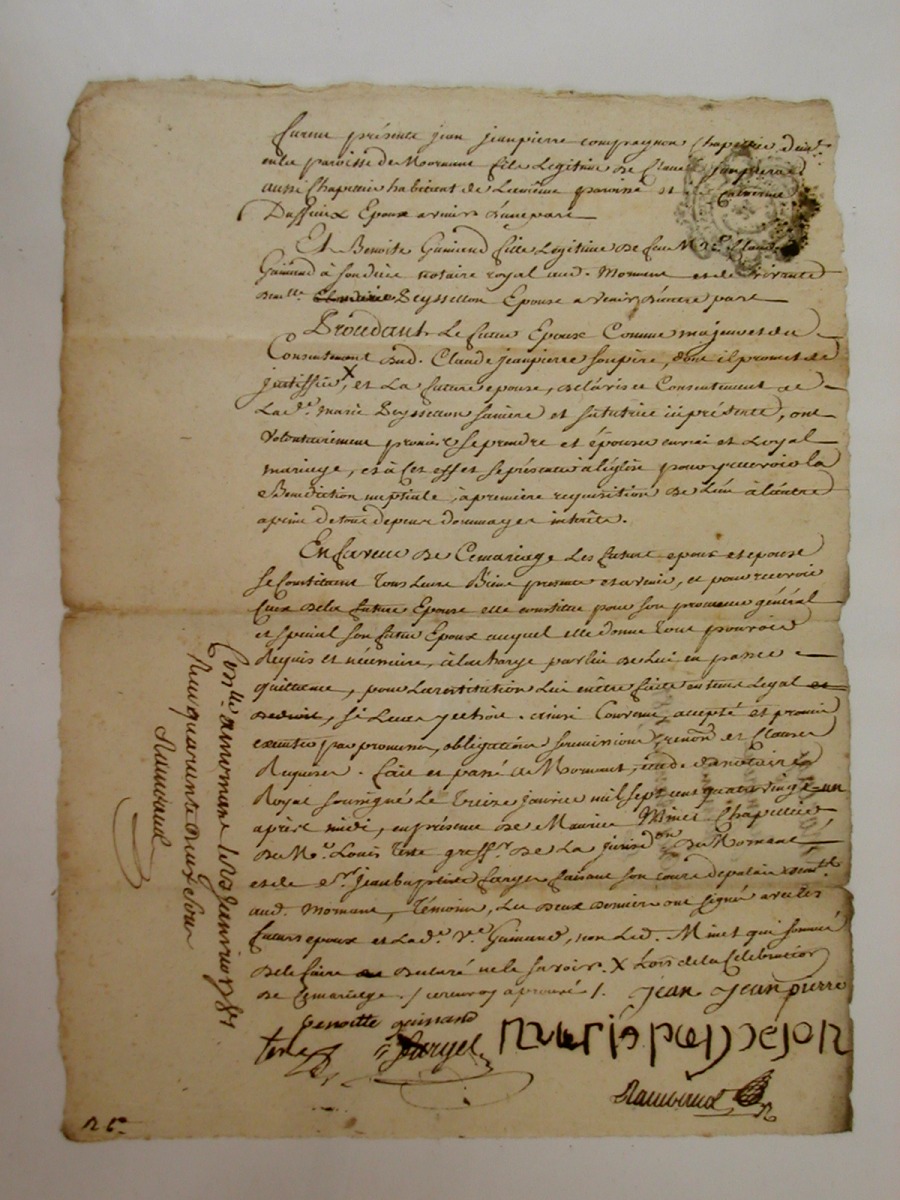 furent présents jean jeanpierre compagnon Chapellier demt.
en la paroisse de Mornant fils Legitime de Claude jeanpierre
aussi Chapellier habitant de la même paroisse et de Catherine
Dussieux Epoux avenir d'une part
Et Benoite Guinand fille Legitime de feu Mre.
Guinand à son vivant notaire royal aud. Mornant et de vivante
Peyssellon Epouse a venir d'autre part
Procédants Le futur Epoux Comme majeur et du
Consentement dud. Claude jeanpierre son père, dont il promet de
justiffier X, et La future epouse, de l'avis et Consentement de
Lade. marie Peyssellon sa mère et sa tutrice ici présente, ont
volontairement promis se prendre et épouser en vrai et Loyal
mariage, et à cet effet se présenter à l'église pour y recevoir la
Benediction nuptiale, à première requisition de L'un à l'autre
a peine de tous depens dommages intérêts.
En faveur de Ce mariage Les futurs epoux et epouse
se Constituent Tous Leurs Biens presents et avenir, et pour recevoir
Ceux de la future Epouse elle constitue pour son procureur général
et special son futur Epoux auquel elle donne tout pouvoir
Requis et nécessaire, à la charge par lui de Lui en passer
quittance, pour La restitution Lui en être faite en tems Legal
si Lieu y echoit. ainsi Convenu, accepté et promis
executer par promesses, obligations soumissions, renons. et Clauses
Requises. fait et passé à Mornant, étude du notaire
Royal soussigné Le treize janvier mil sept cent quatre vingt un
après midi, en présence de Maurice Minet Chapellier
de Me. Louis greffr. de La jurisdon. de Mornant
et de sr. jean baptiste Farges faisant son cours de palais
aud. Mornant, Témoins, Les deux derniers ont signé avec les
futurs epoux et lade. Ve. Guinand, non led. Minet qui sommé
de le faire a declaré ne le savoir. X Lors de la Célébration
de ce mariage. / ce renvoy aprouvé /. jean jeanpierre
benoitte guinand
farges maria peysselon
Conllé. a mornant le 23 janvier 1781
Reçu quarante deux sous